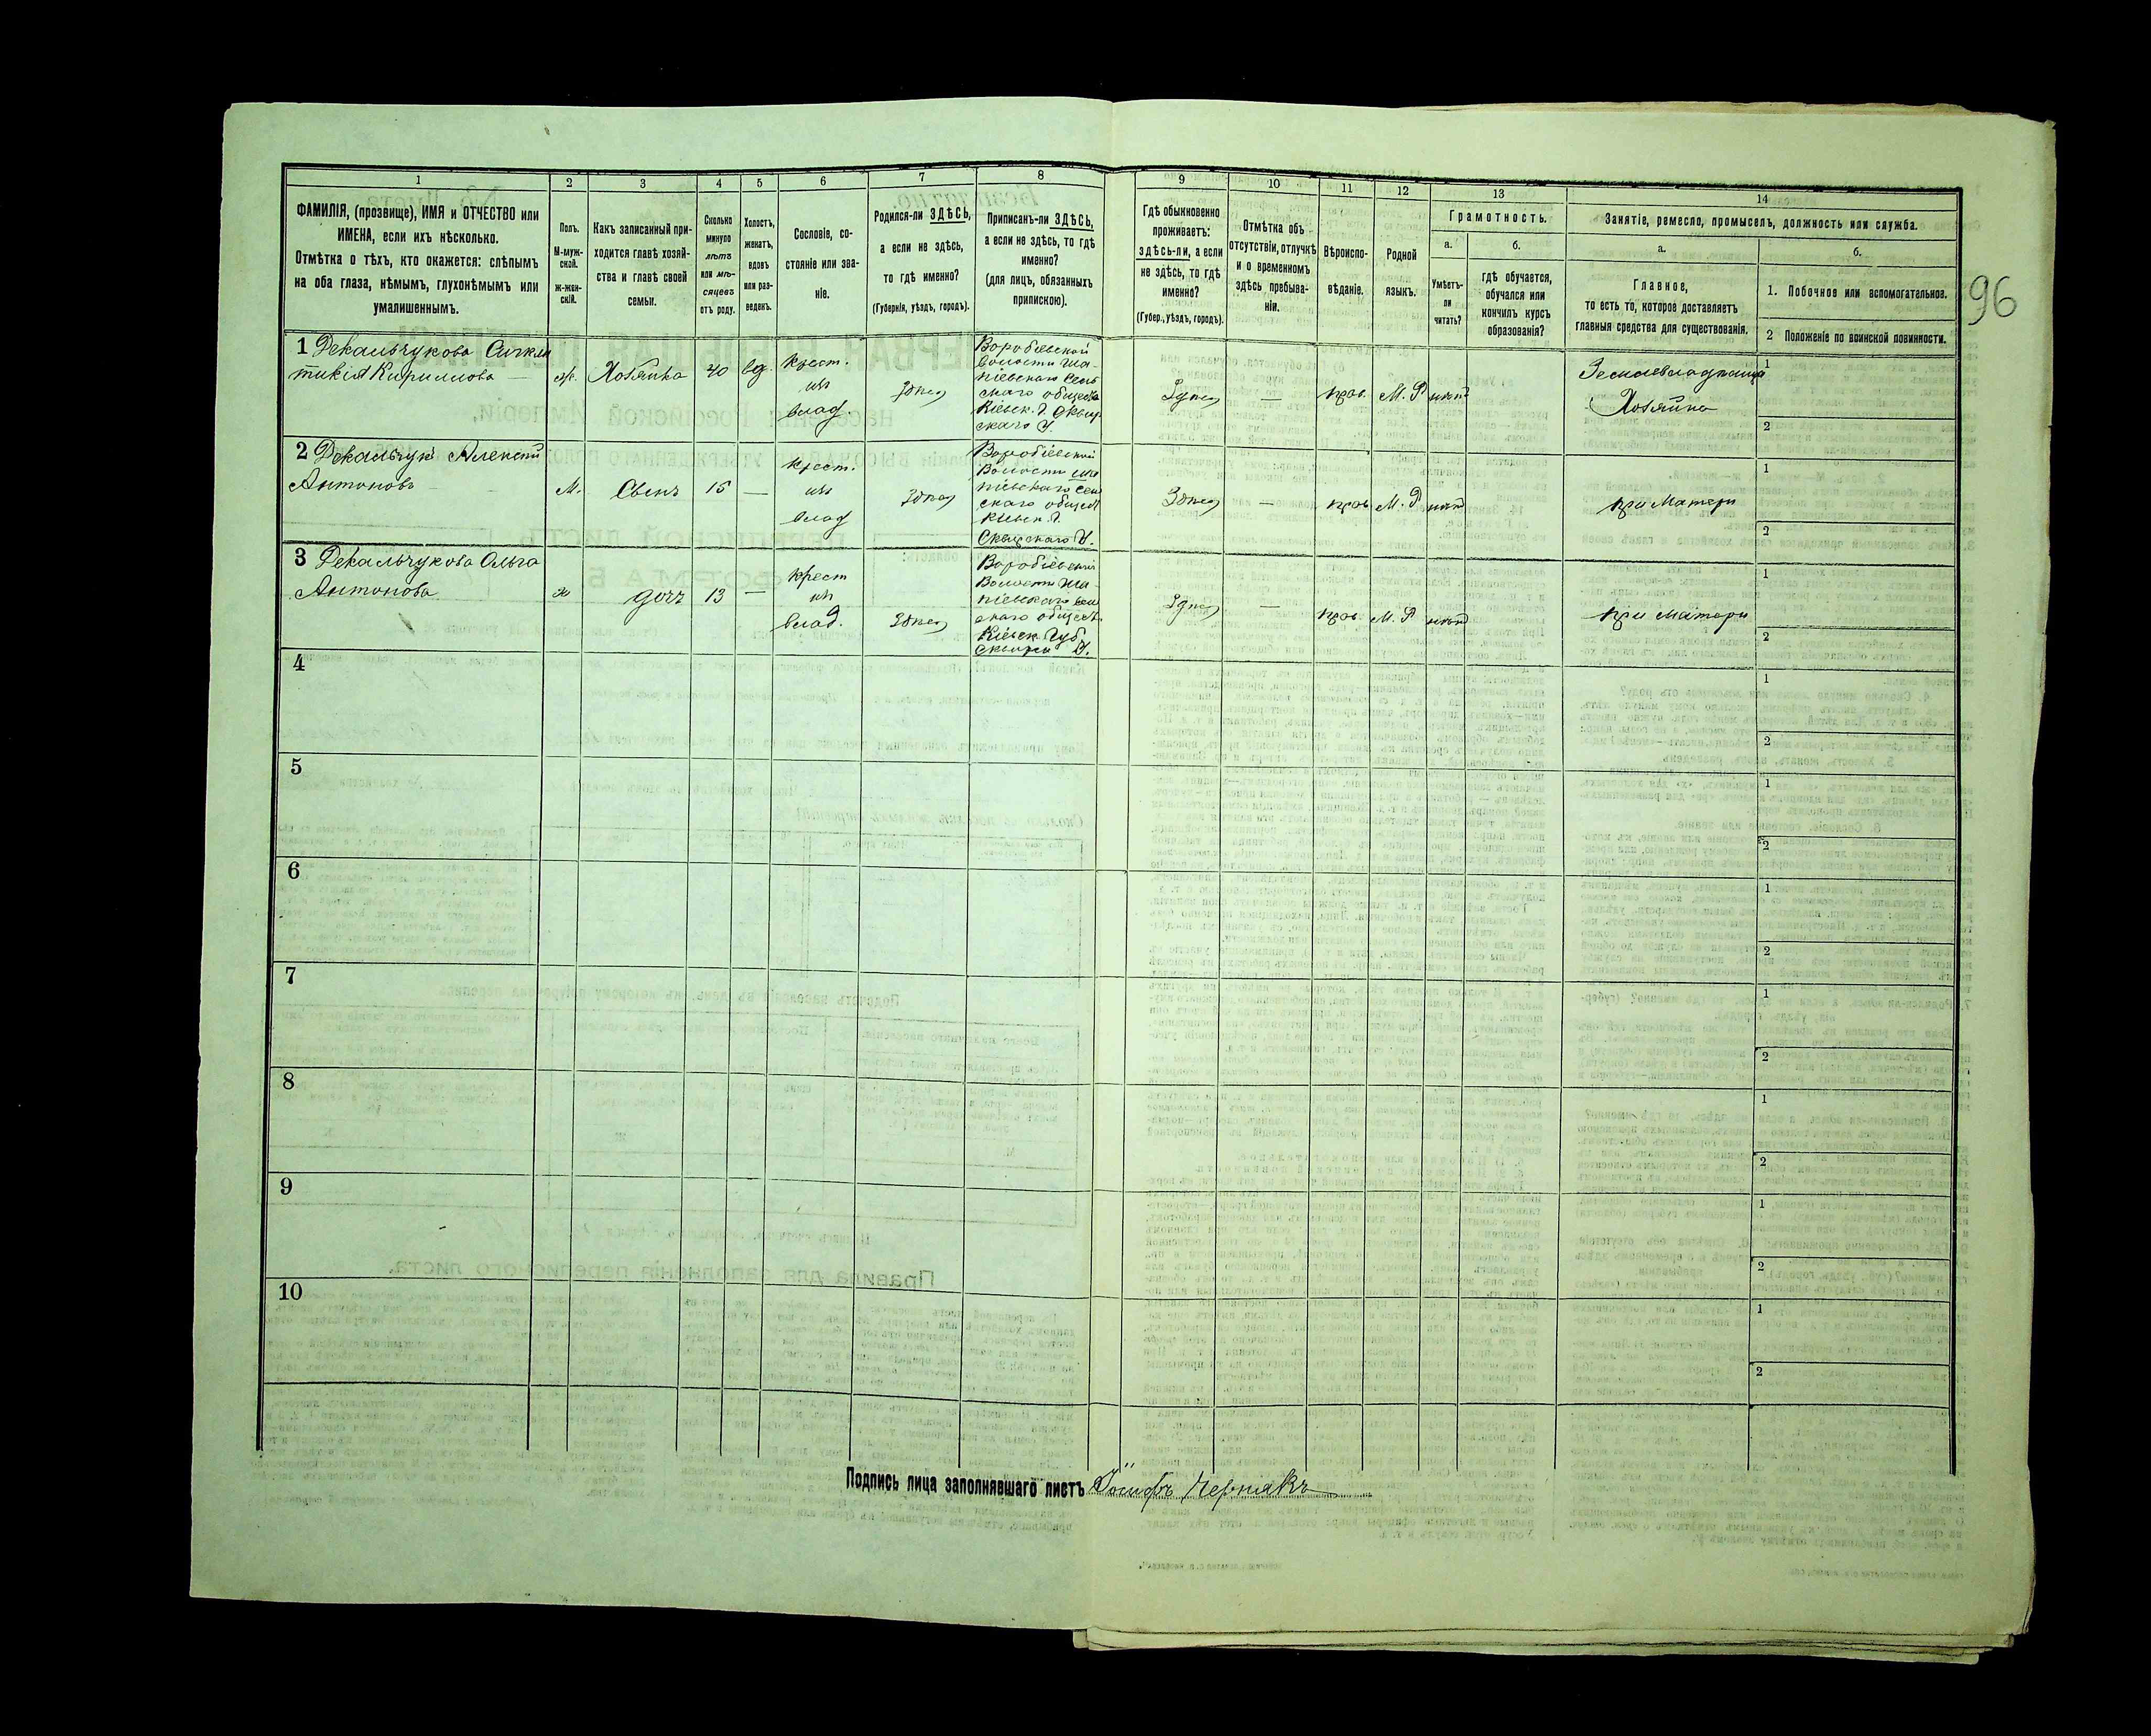 1 2 3 4 5 6 7 8 9 10 11 12 13 14
ФАМИЛІЯ, (прозвище), ИМЯ и ОТЧЕСТВО или
ИМЕНА, если ихъ нѣсколько.
Отмѣтка о тѣхъ, кто окажется: слѣпымъ
на оба глаза, нѣмымъ, глухонѣмымъ или
умалишеннымъ.
Полъ.
М-муж-
ской.
ж-жен-
скій.
Какъ записанный при-
ходится главѣ хозяй-
ства и главѣ своей
семьи.
Сколько
минуло
лѣтъ
или мѣ-
сяцевъ
отъ роду.
Холостъ,
женатъ,
вдовъ
или раз-
веденъ.
Сословіе, со-
стояніе или зва-
ніе.
Родился-ли ЗДѢСЬ,
а если не здѣсь,
то гдѣ именно?
(Губернія, уѣздъ, городъ).
Приписанъ-ли ЗДѢСЬ,
а если не здѣсь, то гдѣ
именно?
(для лицъ, обязанныхъ
припискою).
Гдѣ обыкновенно
проживаетъ:
здѣсь-ли, а если
не здѣсь, то гдѣ
именно?
(Губер., уѣздъ, городъ).
Отмѣтка объ
отсутствіи, отлучкѣ
и о временномъ
здѣсь пребыва-
ніи.
Вѣроиспо-
вѣданіе.
Родной
языкъ.
Грамотность.
а.
Умѣетъ-
ли
читать?
б.
гдѣ обучается,
обучался или
кончилъ курсъ
образованія?
Занятіе, ремесло, промыселъ, должность или служба.
а.
Главное,
то есть то, которое доставляетъ
главныя средства для существованія.
б.
1. Побочное или вспомогательное.
2 Положеніе по воинской повинности.
96
1 Декальчукова
Кирилова
Хозяйка
40
вд.
крест.
изъ
влад.
здѣсь
Воробіевской
волости
скаго общества
Кіевск. Г. Сквир
скаго У.
здѣсь
—
прав.
М. Р
Землевладѣлица
Хозяйка
1
2
2 Декальчукъ Алексѣй
Антоновъ
М.
Сынъ
15
—
крест.
изъ
влад
здѣсь
Воробіевской
Волости
скаго общест
Кіевск. Г.
Сквирскаго У.
здѣсь
—
прав
М. Р
при Матери
1
2
3 Декальчукова Ольга
Антонова
ж
дочь
13
—
крест
изъ
влад.
здѣсь
Воробіевской
Волости
скаго обществ
Кіевск. Губ.
Сквирск У.
здѣсь
—
прав
М. Р
при матери
1
2
4
1
2
5
1
2
6
1
2
7
1
2
8
1
2
9
1
2
10
1
2
Подпись лица заполнявшаго листъ Іосифъ Чернякъ